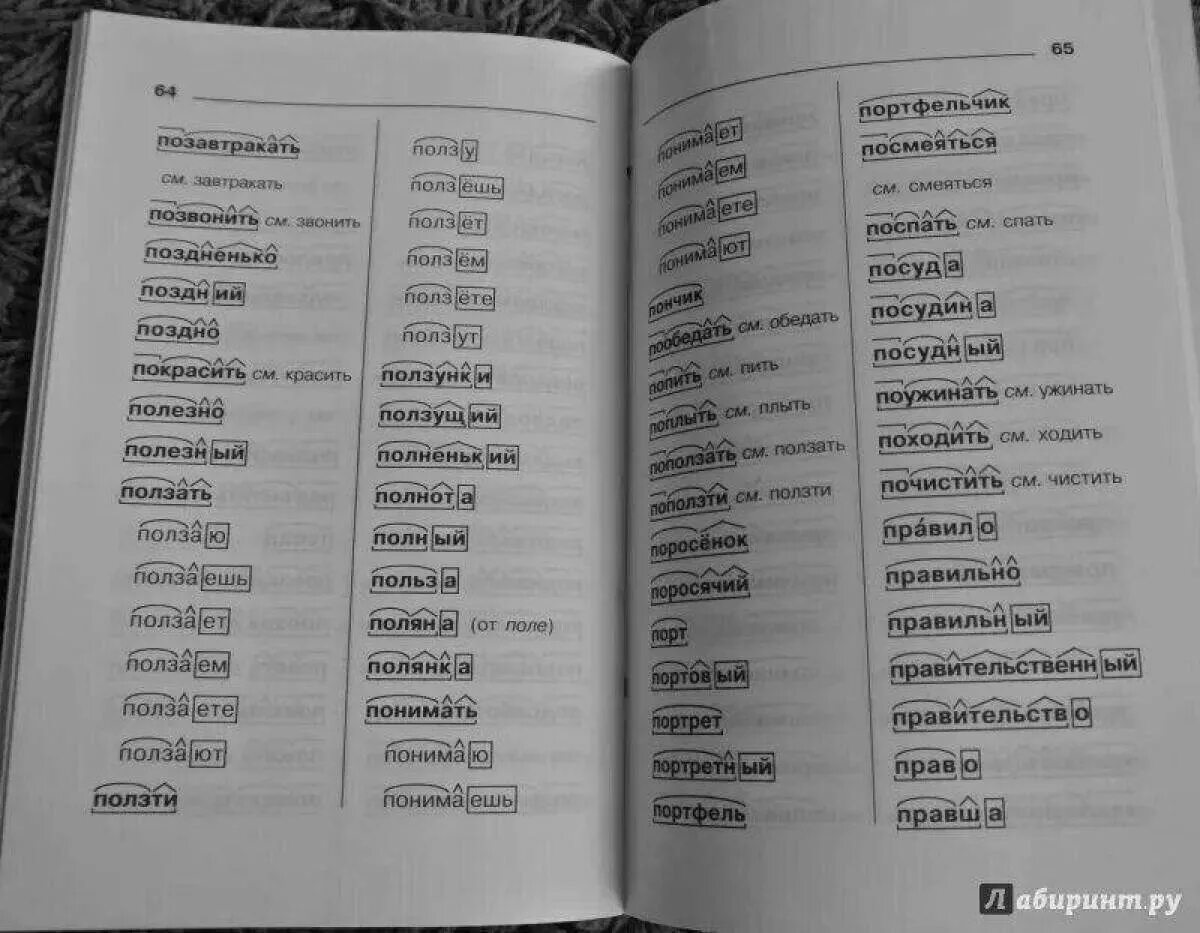 64
позавтракать
см. завтракать
позвонить см. звонить
поздненько
поздний
поздно
покрасить см. красить
полезно
полезный
ползать
ползаю
ползаешь
ползает
ползаем
ползаете
ползают
ползти
ползу
ползёшь
ползёт
ползём
ползёте
ползут
ползунки
ползущий
полненький
полнота
полный
польза
поляна (от поле)
полянка
понимать
понимаю
понимаешь
65
понимает
понимаем
понимаете
понимают
пончик
пообедать см. обедать
попить см. пить
поплыть см. плыть
поползать см. ползать
поползти см. ползти
поросёнок
поросячий
порт
портовый
портрет
портретный
портфель
портфельчик
посмеяться
см. смеяться
поспать см. спать
посуда
посудина
посудный
поужинать см. ужинать
походить см. ходить
почистить см. чистить
пра́вило
правильно
правильный
правительственный
правительство
право
правша
Лабиринт.ру